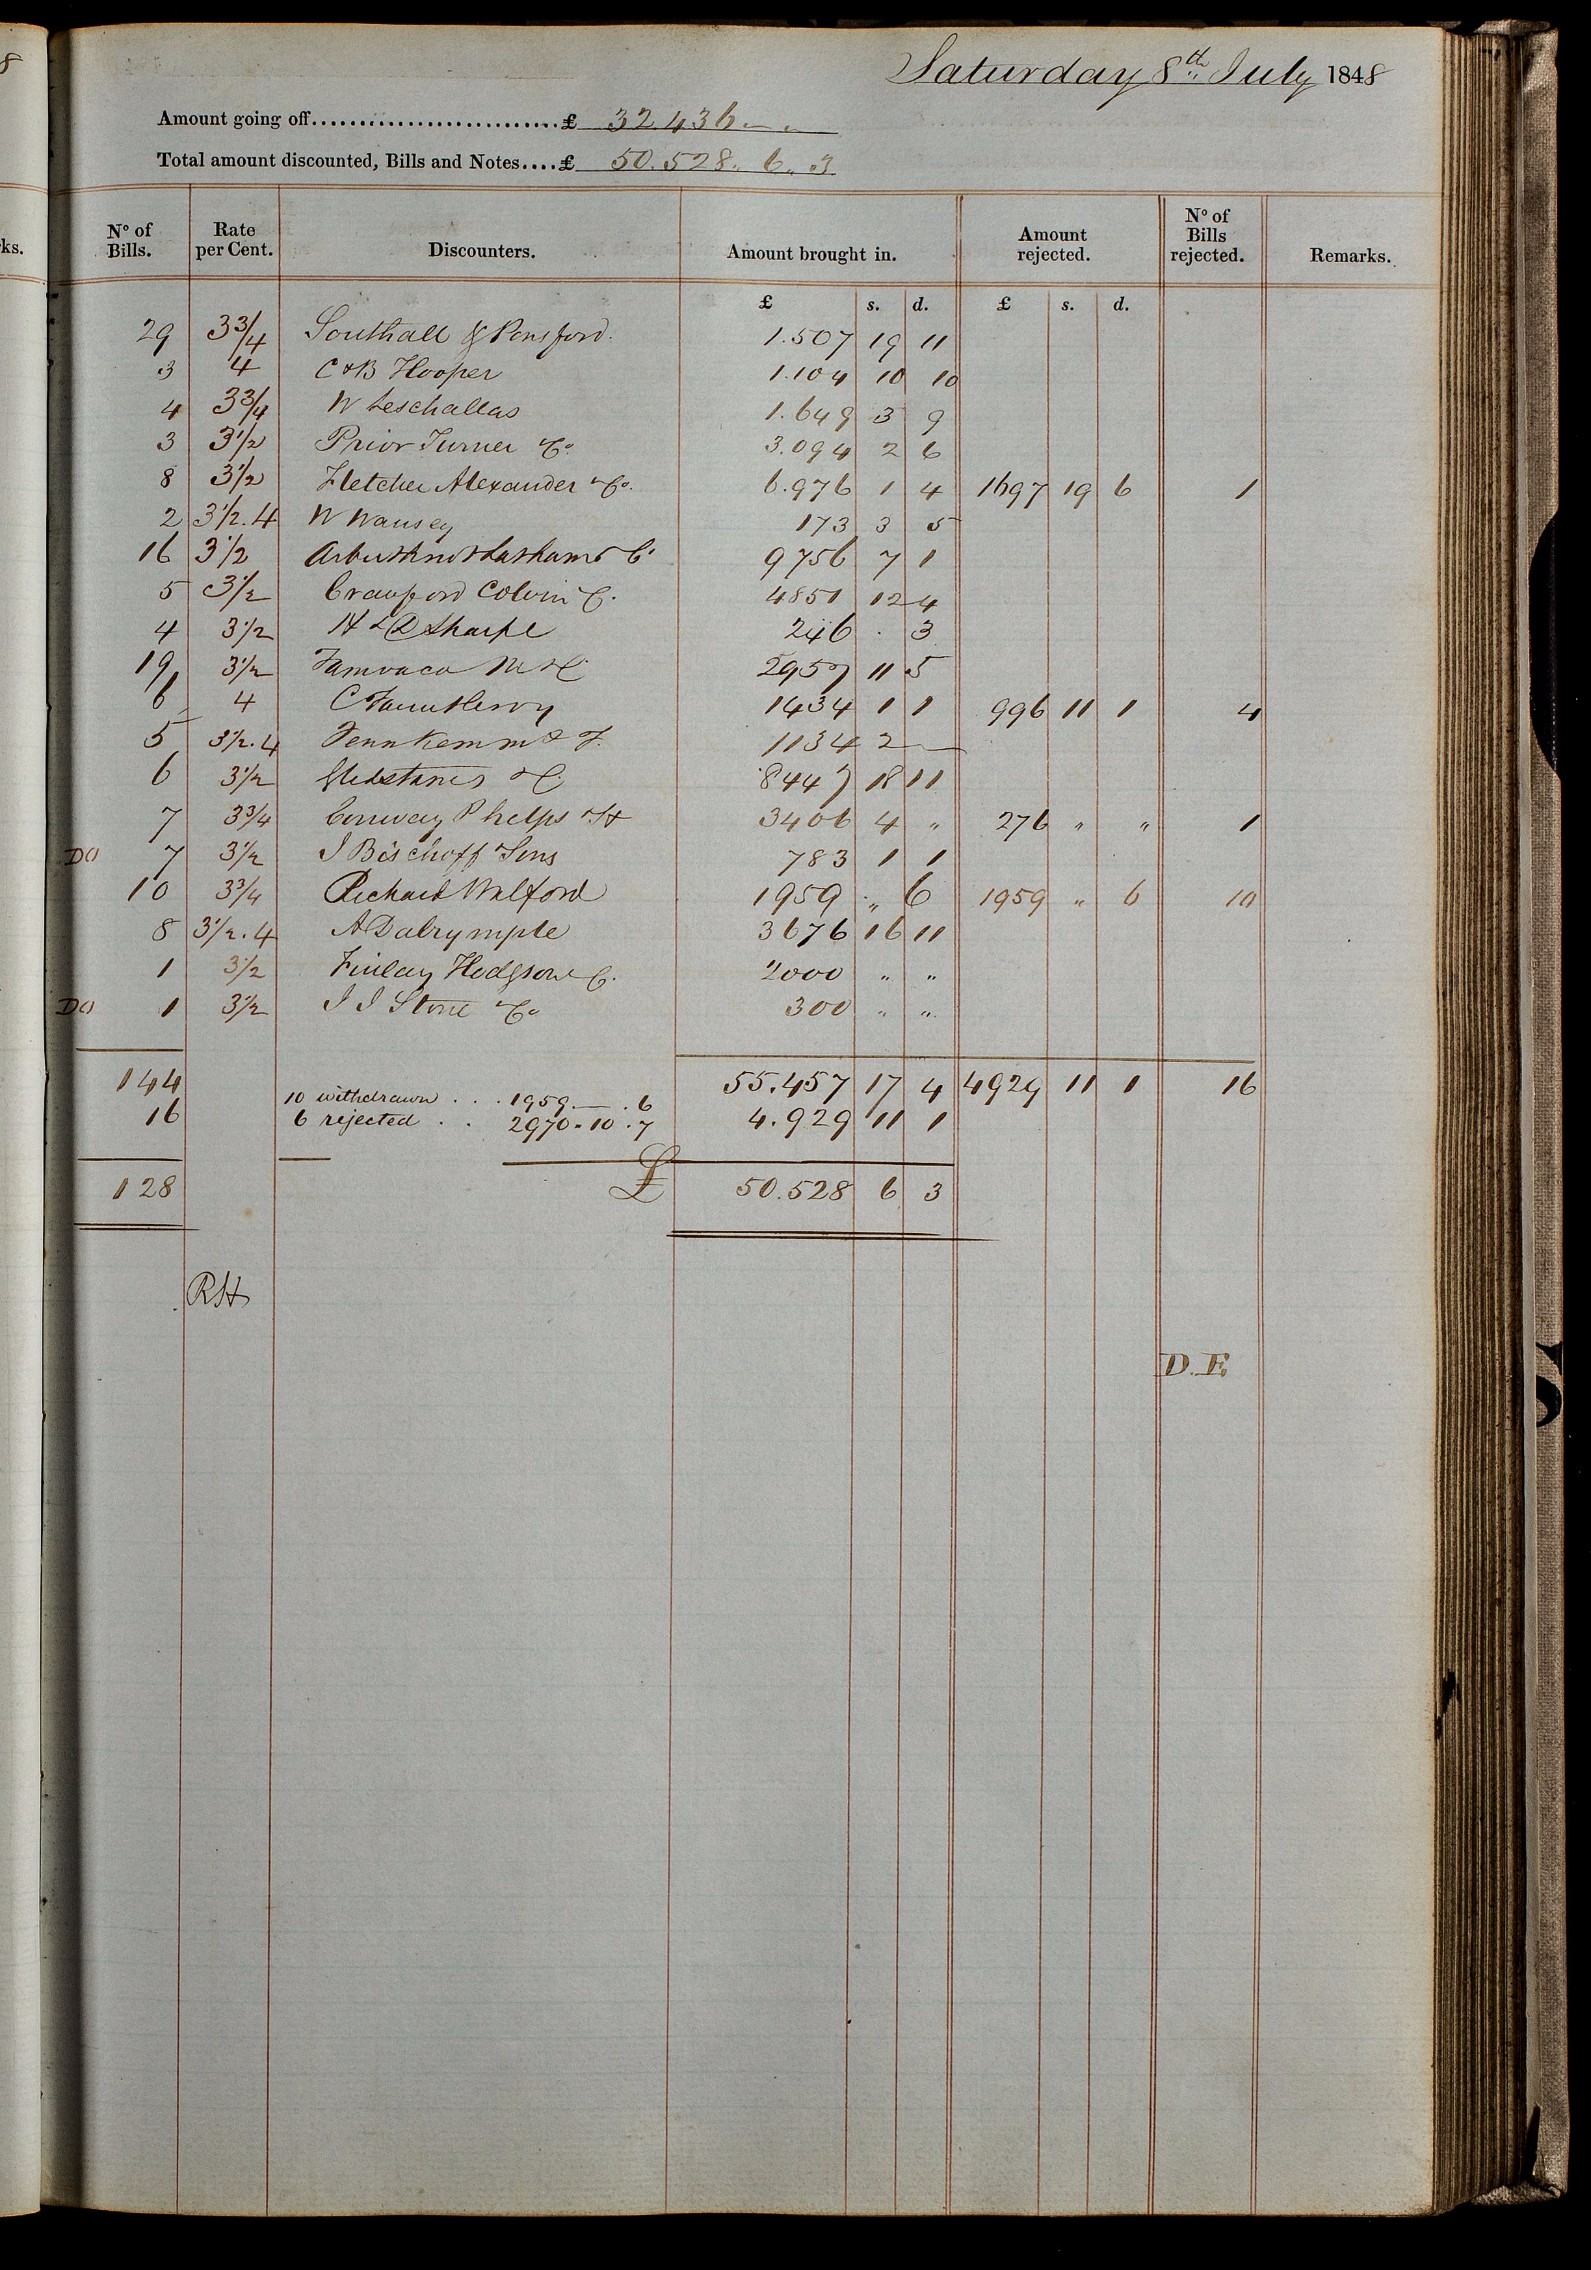 8
ks.
Saturday 8th July 1848
Amount going off...........................£ 32.436 — „
Total amount discounted, Bills and Notes....£ 50.528 „ 6 „ 3
No of Bills. Rate per Cent. Discounters. Amount brought in. Amount rejected. No of Bills rejected. Remarks.
£ s. d. £ s. d.
29 3 3/4 Southall & Ponsford. 1.507 19 11
3 4 C & B Hooper 1.104 10 10
4 3 3/4 W Leschallas 1.649 3 9
3 3 1/2 Prior Turner & Co. 3.094 2 6
8 3 1/2 Fletcher Alexander & Co. 6.976 1 4 1697 19 6 1
2 3 1/2 . 4 W Wansey 173 3 5
16 3 1/2 Arbuthnot Latham & Co 9756 7 1
5 3 1/2 Crawford Colvin & C. 4851 12 4
4 3 1/2 H & D Sharpe 246 . 3
19 3 1/2 2957 11 5
6 4 C 1434 1 1 996 11 1 4
5 3 1/2 . 4 1134 2 —
6 3 1/2 Gledstanes & C 8447 18 11
7 3 3/4 Conway Phelps & H 3406 4 „ 276 „ „ 1
DO 7 3 1/2 J Bischoff & Sons 783 1 1
10 3 3/4 Richard Walford 1959 „ 6 1959 „ 6 10
8 3 1/2 . 4 A Dalrymple 3676 16 11
1 3 1/2 Finlay Hodgson & C. 2000 „ „
DO 1 3 1/2 J J Stone & Co 300 „ „
144 55.457 17 4 4929 11 1 16
10 withdrawn . . . 1959 — . 6
16 6 rejected . . 2970 . 10 . 7 4.929 11 1
128 £ 50.528 6 3
RH
D.E.